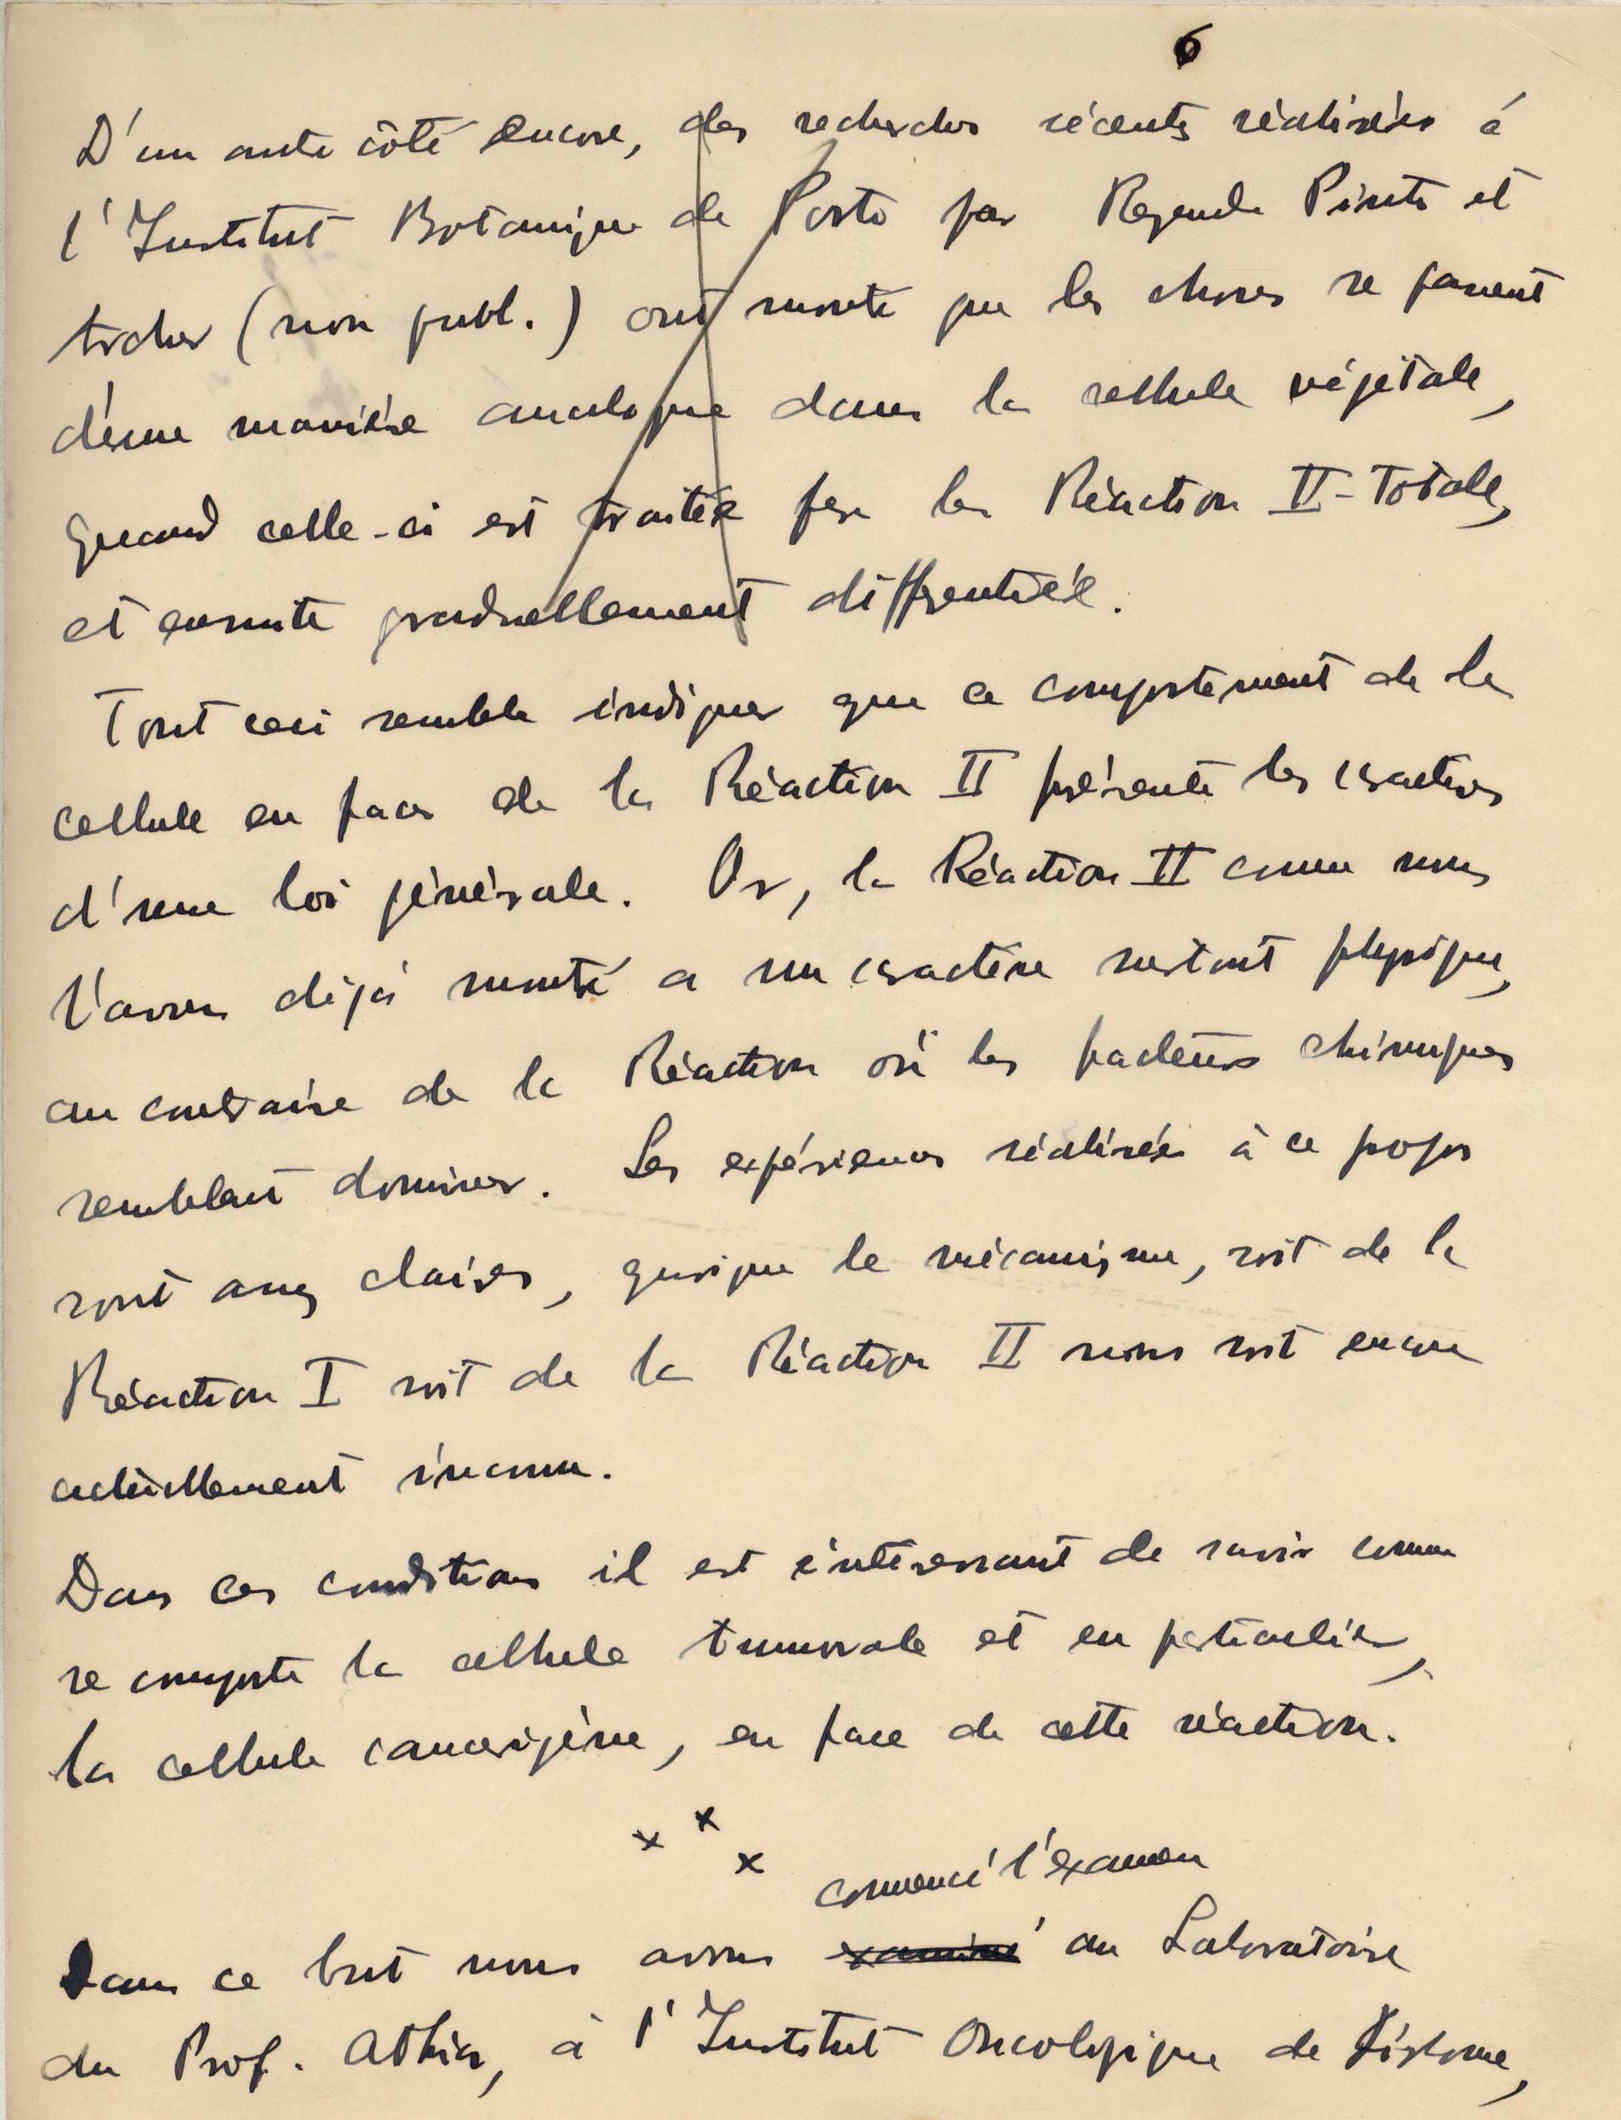 6
D'un autre côté encore, des recherches récents réalisées à
l'Institut Botanique de Porto par Rezende Pinto et
(non publ.) ont montré que les choses se passent
d'une manière analogue dans la cellule végétale,
quand celle-ci est traitée par la Réaction II-Totale,
et ensuite graduellement différentiée.
Tout ceci semble indiquer que ce comportement de la
cellule en face de la Réaction II présente les caractères
d'une loi générale. Or, la Réaction II comme nous
l'avons déjà montré a un caractère surtout physique,
au contraire de la Réaction où les facteurs chimiques
semblent dominer. Les expériences réalisées à ce propos
sont assez claires, quoique le mécanisme, soit de la
Réaction I soit de la Réaction II nous soit encore
actuellement inconnu.
Dans ces conditions il est intéressant de savoir comme
se comporte la cellule tumorale et en particulier,
la cellule cancerigène, en face de cette réaction.
x x x
commencé l'examen
Dans ce but nous avons examiné au Laboratoire
du Prof. Athias, à l'Institut Oncologique de Lisbonne,